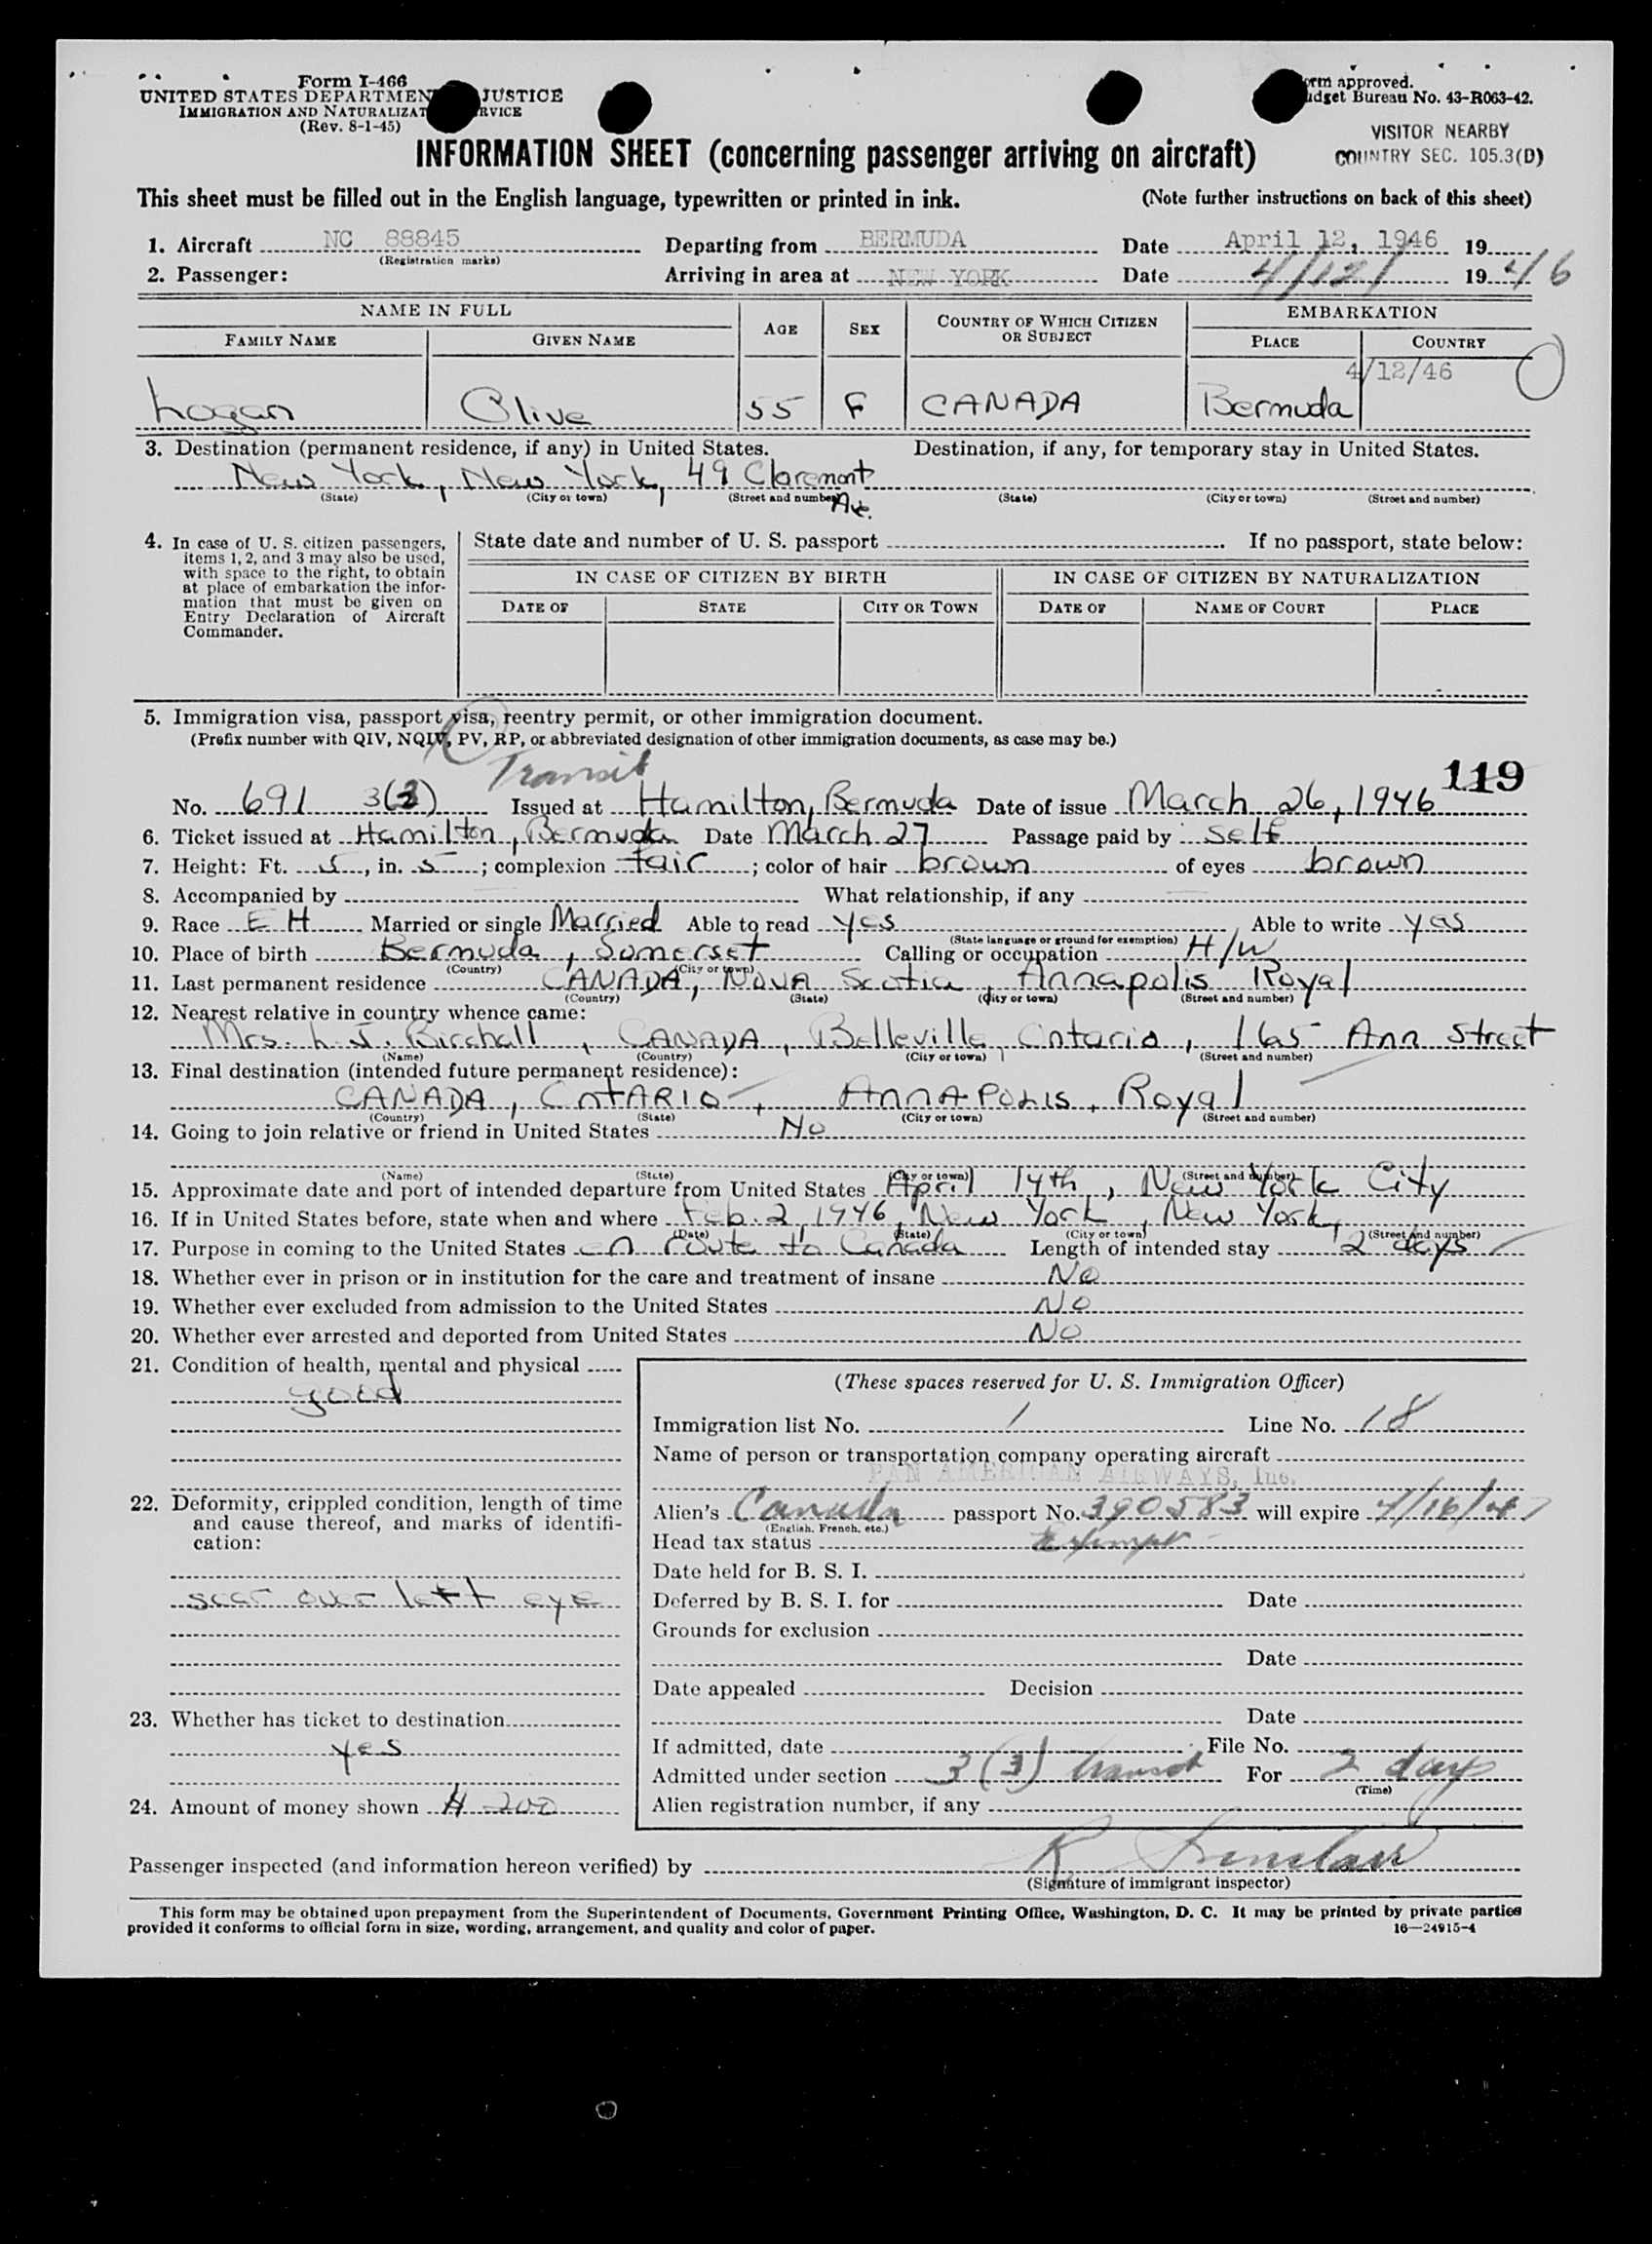 Form I-466
UNITED STATES DEPARTMEN JUSTICE
IMMIGRATION AND NATURALIZAT RVICE
(Rev. 8-1-45)
orm approved.
udget Bureau No. 43-R063-42.
VISITOR NEARBY
COUNTRY SEC. 105.3(D)
INFORMATION SHEET (concerning passenger arriving on aircraft)
This sheet must be filled out in the English language, typewritten or printed in ink. (Note further instructions on back of this sheet)
1. Aircraft NC 88845 Departing from BERMUDA Date April 12, 1946 19
(Registration marks)
2. Passenger: Arriving in area at NEW YORK Date 4/12/ 1946
NAME IN FULL AGE SEX COUNTRY OF WHICH CITIZEN OR SUBJECT EMBARKATION
FAMILY NAME GIVEN NAME PLACE COUNTRY
4/12/46
Logan Olive 55 F CANADA Bermuda
3. Destination (permanent residence, if any) in United States. Destination, if any, for temporary stay in United States.
New York, New York, 49 Claremont Ave.
(State) (City or town) (Street and number) (State) (City or town) (Street and number)
4. In case of U. S. citizen passengers, items 1, 2, and 3 may also be used, with space to the right, to obtain at place of embarkation the information that must be given on Entry Declaration of Aircraft Commander.
State date and number of U. S. passport If no passport, state below:
IN CASE OF CITIZEN BY BIRTH IN CASE OF CITIZEN BY NATURALIZATION
DATE OF STATE CITY OR TOWN DATE OF NAME OF COURT PLACE
5. Immigration visa, passport visa, reentry permit, or other immigration document.
(Prefix number with QIV, NQIV, PV, RP, or abbreviated designation of other immigration documents, as case may be.)
Transit 119
No. 691 3(3) Issued at Hamilton, Bermuda Date of issue March 26, 1946
6. Ticket issued at Hamilton, Bermuda Date March 27 Passage paid by self
7. Height: Ft. 5, in. 5; complexion fair; color of hair brown of eyes brown
8. Accompanied by What relationship, if any
9. Race E H Married or single Married Able to read yes Able to write yes
(State language or ground for exemption)
10. Place of birth Bermuda, Somerset Calling or occupation H/W
(Country) (City or town)
11. Last permanent residence CANADA, NOVA Scotia, Annapolis Royal
(Country) (State) (City or town) (Street and number)
12. Nearest relative in country whence came:
Mrs. L. J. Birchall, CANADA, Belleville Ontario, 165 Ann Street
(Name) (Country) (City or town) (Street and number)
13. Final destination (intended future permanent residence):
CANADA, OntARIO, AnnAPOLIS, Royal
(Country) (State) (City or town) (Street and number)
14. Going to join relative or friend in United States No
(Name) (State) (City or town) (Street and number)
15. Approximate date and port of intended departure from United States April 14th, New York City
16. If in United States before, state when and where Feb. 2, 1946, New York, New York,
(Date) (State) (City or town) (Street and number)
17. Purpose in coming to the United States en route to Canada Length of intended stay 2 days
18. Whether ever in prison or in institution for the care and treatment of insane No
19. Whether ever excluded from admission to the United States No
20. Whether ever arrested and deported from United States No
21. Condition of health, mental and physical
good
22. Deformity, crippled condition, length of time and cause thereof, and marks of identification:
scar over left eye
23. Whether has ticket to destination
yes
24. Amount of money shown 200
(These spaces reserved for U. S. Immigration Officer)
Immigration list No. 1 Line No. 18
Name of person or transportation company operating aircraft
PAN AMERICAN AIRWAYS, Inc.
Alien's Canada passport No. 390583 will expire 4/16/47
(English, French, etc.)
Head tax status Exempt
Date held for B. S. I.
Deferred by B. S. I. for Date
Grounds for exclusion
Date
Date appealed Decision
Date
If admitted, date File No.
Admitted under section 3(3) transit For 2 days
(Time)
Alien registration number, if any
Passenger inspected (and information hereon verified) by R. Sinclair
(Signature of immigrant inspector)
This form may be obtained upon prepayment from the Superintendent of Documents, Government Printing Office, Washington, D. C. It may be printed by private parties
provided it conforms to official form in size, wording, arrangement, and quality and color of paper. 16—24915-4